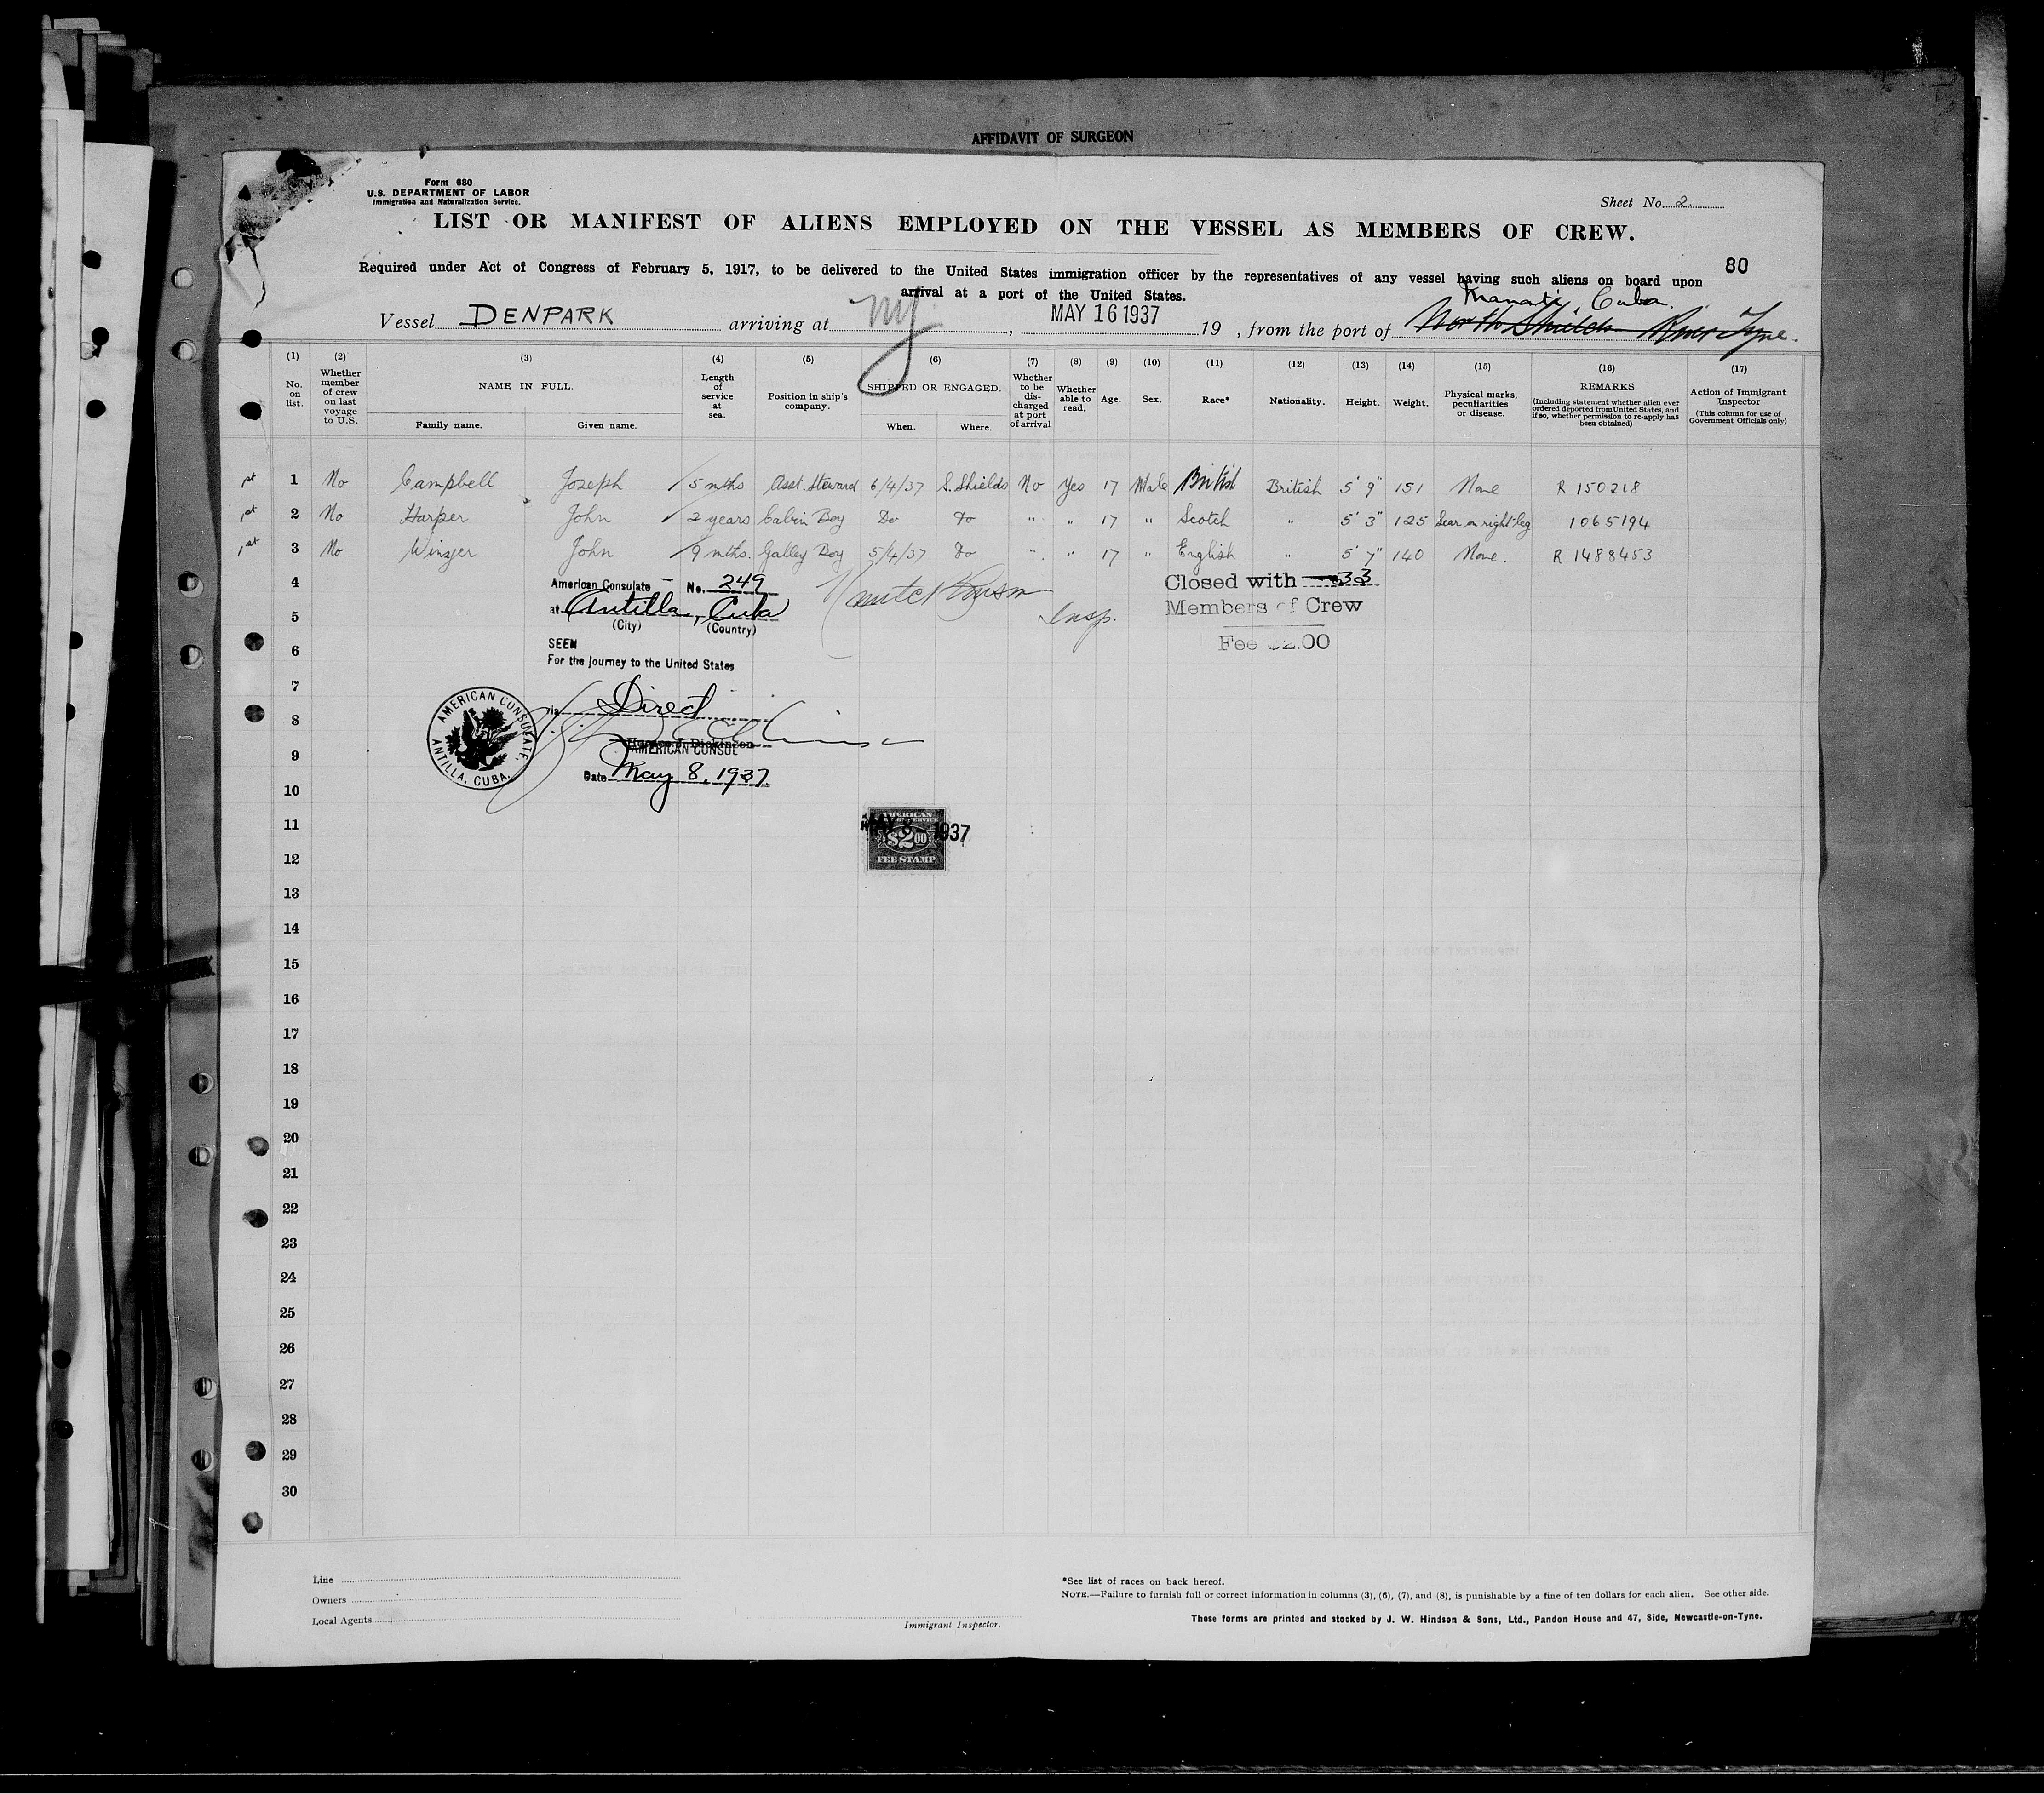 AFFIDAVIT OF SURGEON
Form 680
U.S. DEPARTMENT OF LABOR
Immigration and Naturalization Service.
Sheet No. 2
LIST OR MANIFEST OF ALIENS EMPLOYED ON THE VESSEL AS MEMBERS OF CREW.
80
Required under Act of Congress of February 5, 1917, to be delivered to the United States immigration officer by the representatives of any vessel having such aliens on board upon
arrival at a port of the United States.
Manati, Cuba.
Vessel DENPARK arriving at NY, MAY 16 1937 19 , from the port of North Shields River Tyne.
(1) (2) (3) (4) (5) (6) (7) (8) (9) (10) (11) (12) (13) (14) (15) (16) (17)
No. on list. Whether member of crew on last voyage to U.S. NAME IN FULL. Family name. Given name. Length of service at sea. Position in ship's company. SHIPPED OR ENGAGED. When. Where. Whether to be discharged at port of arrival Whether able to read. Age. Sex. Race* Nationality. Height. Weight. Physical marks, peculiarities or disease. REMARKS (Including statement whether alien ever ordered deported from United States, and if so, whether permission to re-apply has been obtained) Action of Immigrant Inspector (This column for use of Government Officials only)
1 No Campbell Joseph 5 mths Asst. Steward 6/4/37 S. Shields No Yes 17 Male British British 5' 9" 151 None R 150218
2 No Harper John 2 years Cabin Boy Do Do " " 17 " Scotch " 5' 3" 125 Scar on right leg 1065194
3 No Winzer John 9 mths. Galley Boy 5/4/37 Do " " 17 " English " 5' 7" 140 None. R 1488453
4
American Consulate No. 249
Closed with 33
at Antilla, Cuba
Insp.
Members of Crew
5
(City) (Country)
SEEN
Fee $2.00
6
For the journey to the United States
7
via Direct
8
AMERICAN CONSULATE, ANTILLA, CUBA.
Horace J. Dickinson
AMERICAN CONSUL
9
Date May 8, 1937
10
11
AMERICAN
SERVICE
MAY 1937
$2.00
FEE STAMP
12
13
14
15
16
17
18
19
20
21
22
23
24
25
26
27
28
29
30
Line
Owners
Local Agents
Immigrant Inspector.
*See list of races on back hereof.
NOTE.—Failure to furnish full or correct information in columns (3), (6), (7), and (8), is punishable by a fine of ten dollars for each alien. See other side.
These forms are printed and stocked by J. W. Hindson & Sons, Ltd., Pandon House and 47, Side, Newcastle-on-Tyne.